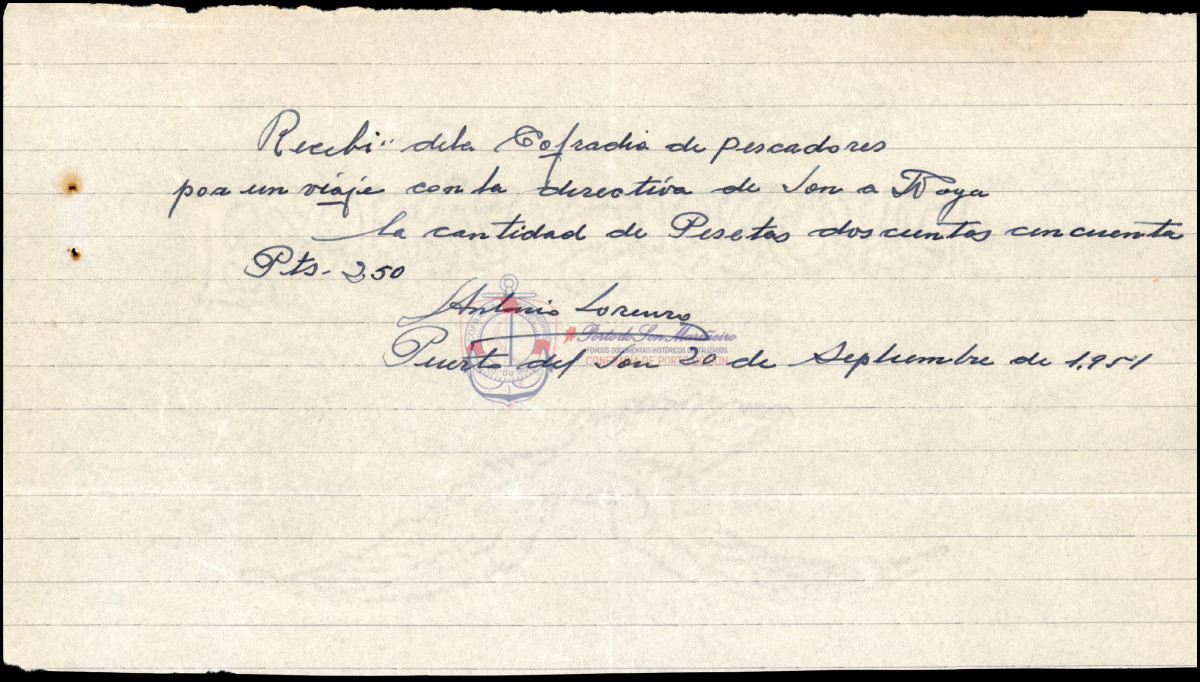 Recebi" dela Cofradia de pescadores
por un viaje con la directiva de Son a Noya
la cantidad de Pesetas doscuntas cincuenta
Pts- 250
Antonio Lorenzo
#Porto do Son Mariñeiro
FONDOS DOCUMENTAIS HISTÓRICOS DIXITALIZADOS
CONFRARÍA DE PORTO DO SON
Puerto del Son 20 de Septiembre de 1.951